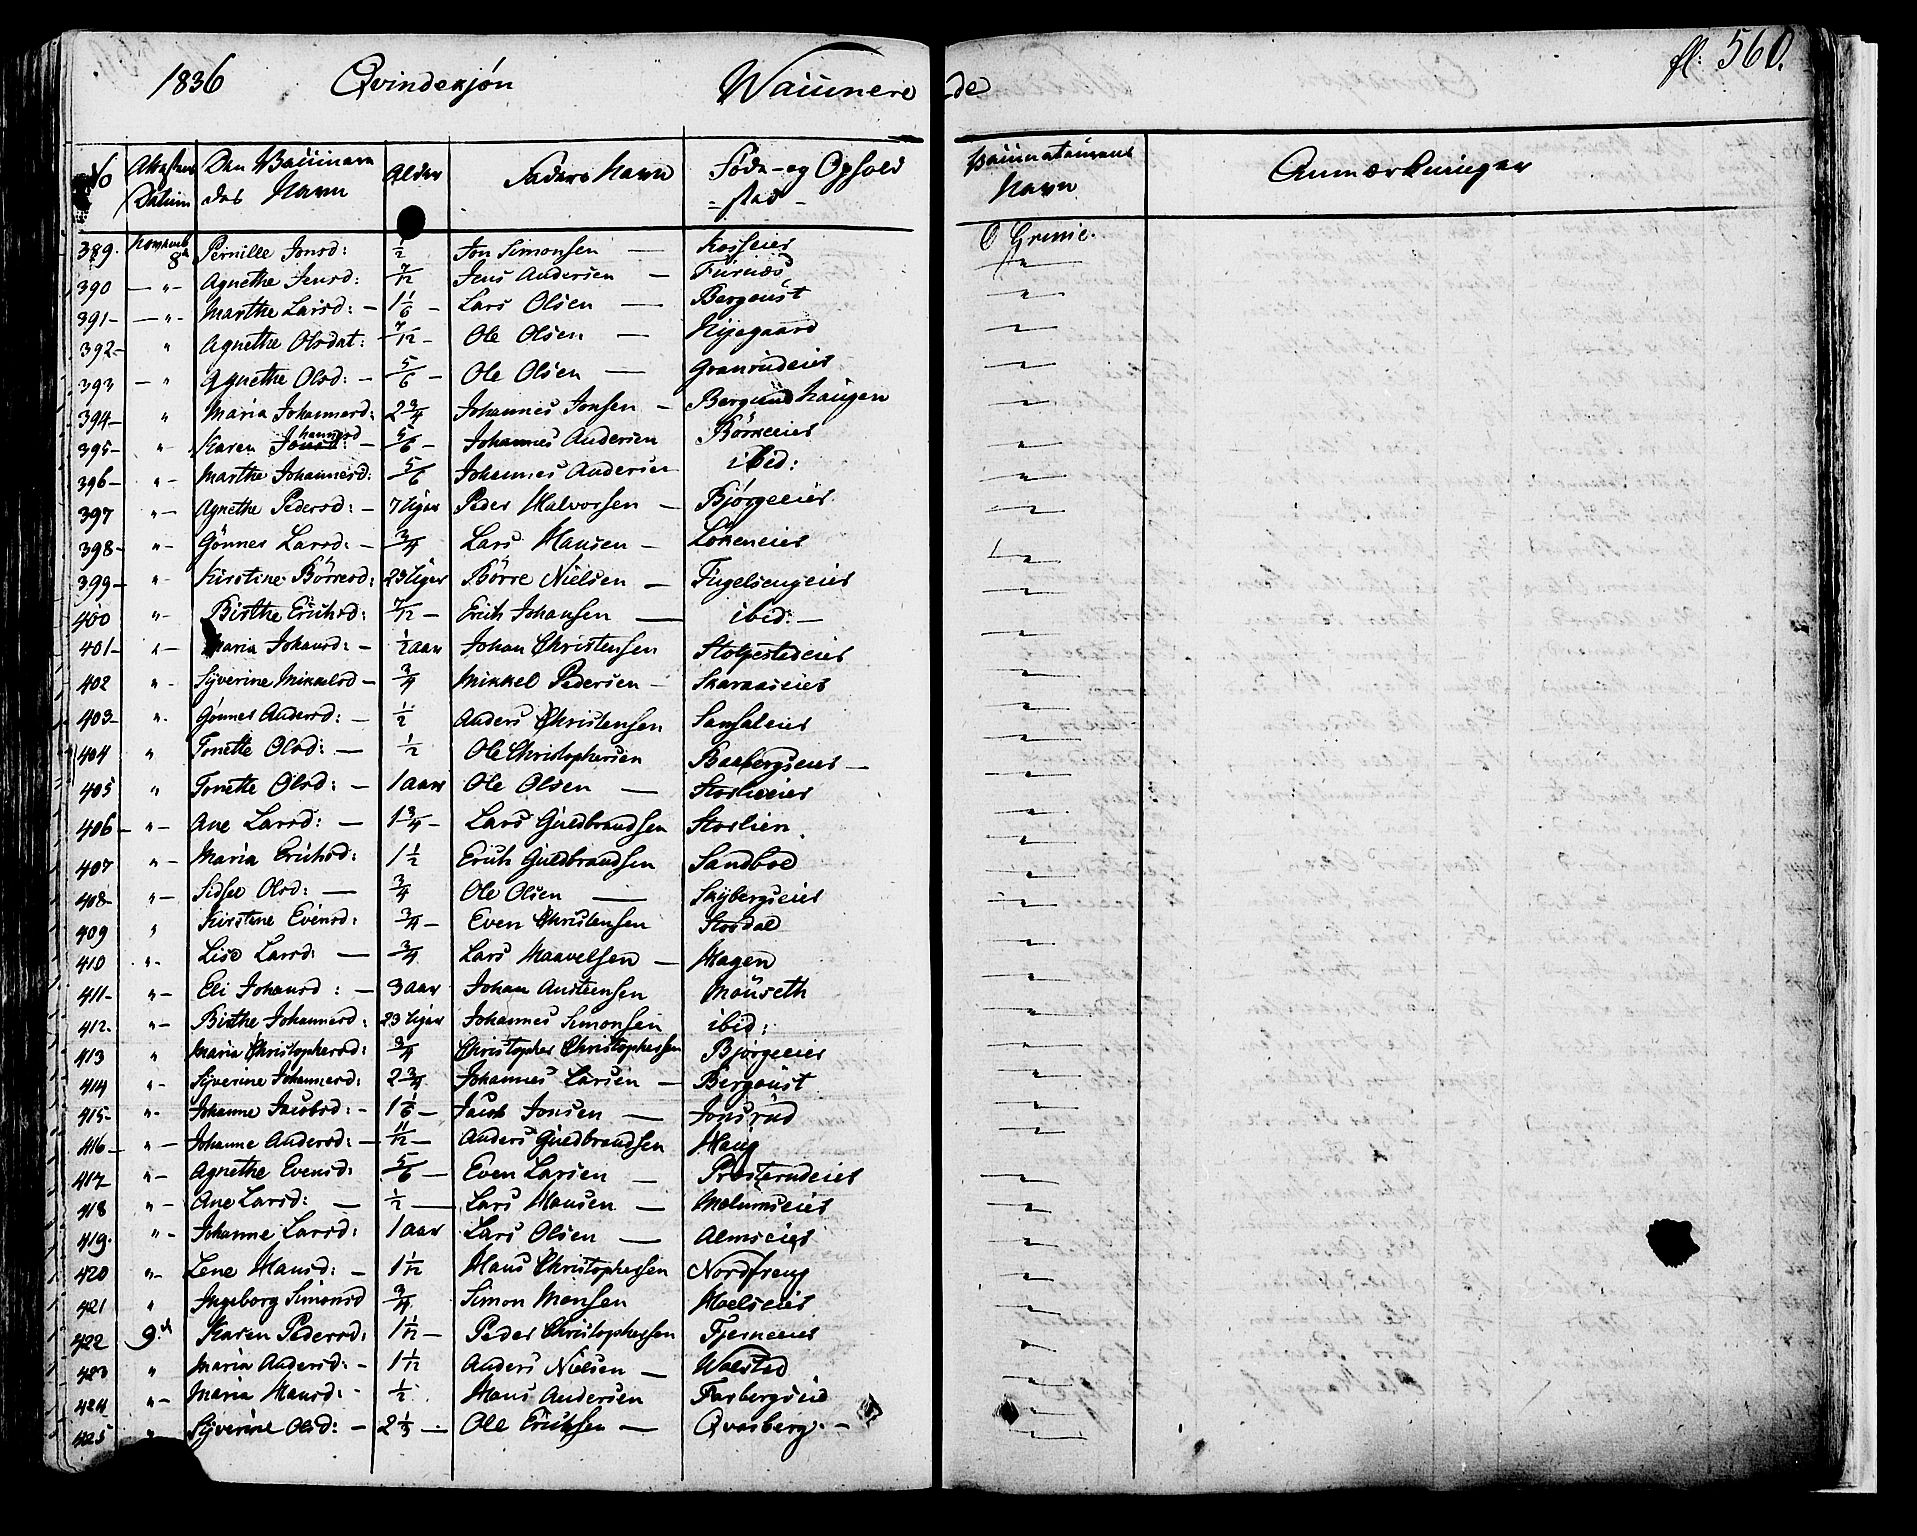 1836 Qvindekjön Waccinerede fl: 560.
No Attestens Datum Den Vaccinerendes Navn Alder Faders Navn Föde- og Ophold =sted- Vaccinateurens Navn Anmærkninger
389. Novemb 8de Pernille Jonsd: 1/2 Jon Simonsen — Kosseier O Grenie.
390 — " — Agnethe Jensd: 7/12 Jens Andersen — Furnæs "
391 — " - Marthe Larsd: — 1 1/6 - Lars Olsen — Bergeust "
392 — " Agnethe Olsdat: — 7/12 - Ole Olsen — Nijegaard "
393 — " Agnethe Olsd: — 5/6 - Ole Olsen — Granrudeier "
394 — " Maria Johannesd: 2 3/4 Johannes Jonsen — Berglundhaugen "
395 — " Karen Johannesd — 5/6 - Johannes Andersen Börkeeier "
396 — " — Marthe Johannesd: 5/6 Johannes Andersen ibid: "
397 " — Agnethe Pedersd: — 7 Uger Peder Halvorsen — Bjørgeeier "
398 — " — Gönner Larsd: — 3/4 Lars Hansen — Lökeneier "
399 — " - Kirstine Börresd: 23 Uger Börre Nielsen — Fugelsengeier "
400 " — Birthe Erichsd: 7/12 — Erich Johansen — ibid: — "
401 — " — Maria Johansd: — 1/2 aar Johan Christensen Stolpestadeier "
402 " — Syverine Mikkelsd — 3/4 Mikkel Pedersen — Skaraaseier "
403 — " - Gönner Andersd: — 1/2 Anders Christensen "
404 " Tonette Olsd: — 1/2 Ole Christophersen Baabergseier — "
405 " Tonette Olsd: — 1 aar Ole Olsen — Storlieeier "
406 — " — Ane Larsd: — 1 3/4 - Lars Guldbrandsen Storlien. "
407 " — Maria Erichsd: 1 1/2 Erich Guldbrandsen Sandboe "
408 — " — Sidsee Olsd: — 3/4 Ole Olsen — Skybergseier "
409 " Kirstine Evensd: 3/4 — Even Christensen Stordal "
410 " - Lise Larsd: — 3/4 Lars Haavelsen — Hagen "
411 — " — Eli Johansd: — 3 aar Johan Austensen Mouseth "
412. " — Birthe Johannesd: 23 Uger Johannes Simonsen ibid: "
413 " Maria Christophersd: 3/4 Christopher Christophersen Bjørgeeier "
414 " — Syverine Johannesd: 2 3/4 Johannes Larsen — Bergoust "
415 — " - Johanne Jacobsd: — 1 1/6 — Jacob Jonsen — Jonsrud "
416 — " — Johanne Andersd: — 11/12 — Anders Guldbrandsen Haug "
417 " — Agnethe Evensd: 5/6 — Even Larsen — Prosterudeier "
418 " — Ane Larsd: — 1/2 — Lars Hansen — Melumseier "
419. " - Johanne Larsd: 1 aar Lars Olsen — Almseier "
420 " — Lene Hansd: — 1 1/12 Hans Christophersen Nordfreng "
421 " Ingeborg Simonsd 3/4 Simon Monsen Hoelseier "
422 9de Karen Pedersd: 1 1/12 — Peder Christophersen Fjerneeier "
423 " Maria Andersd: — 1 1/12 Anders Nielsen — Wolstad "
424 " — Maria Hansd: - 1/2 Hans Andersen Farbergseie "
425 " Syverine Olsd: — 2 1/3 — Ole Erichsen — Qvarberg. — "